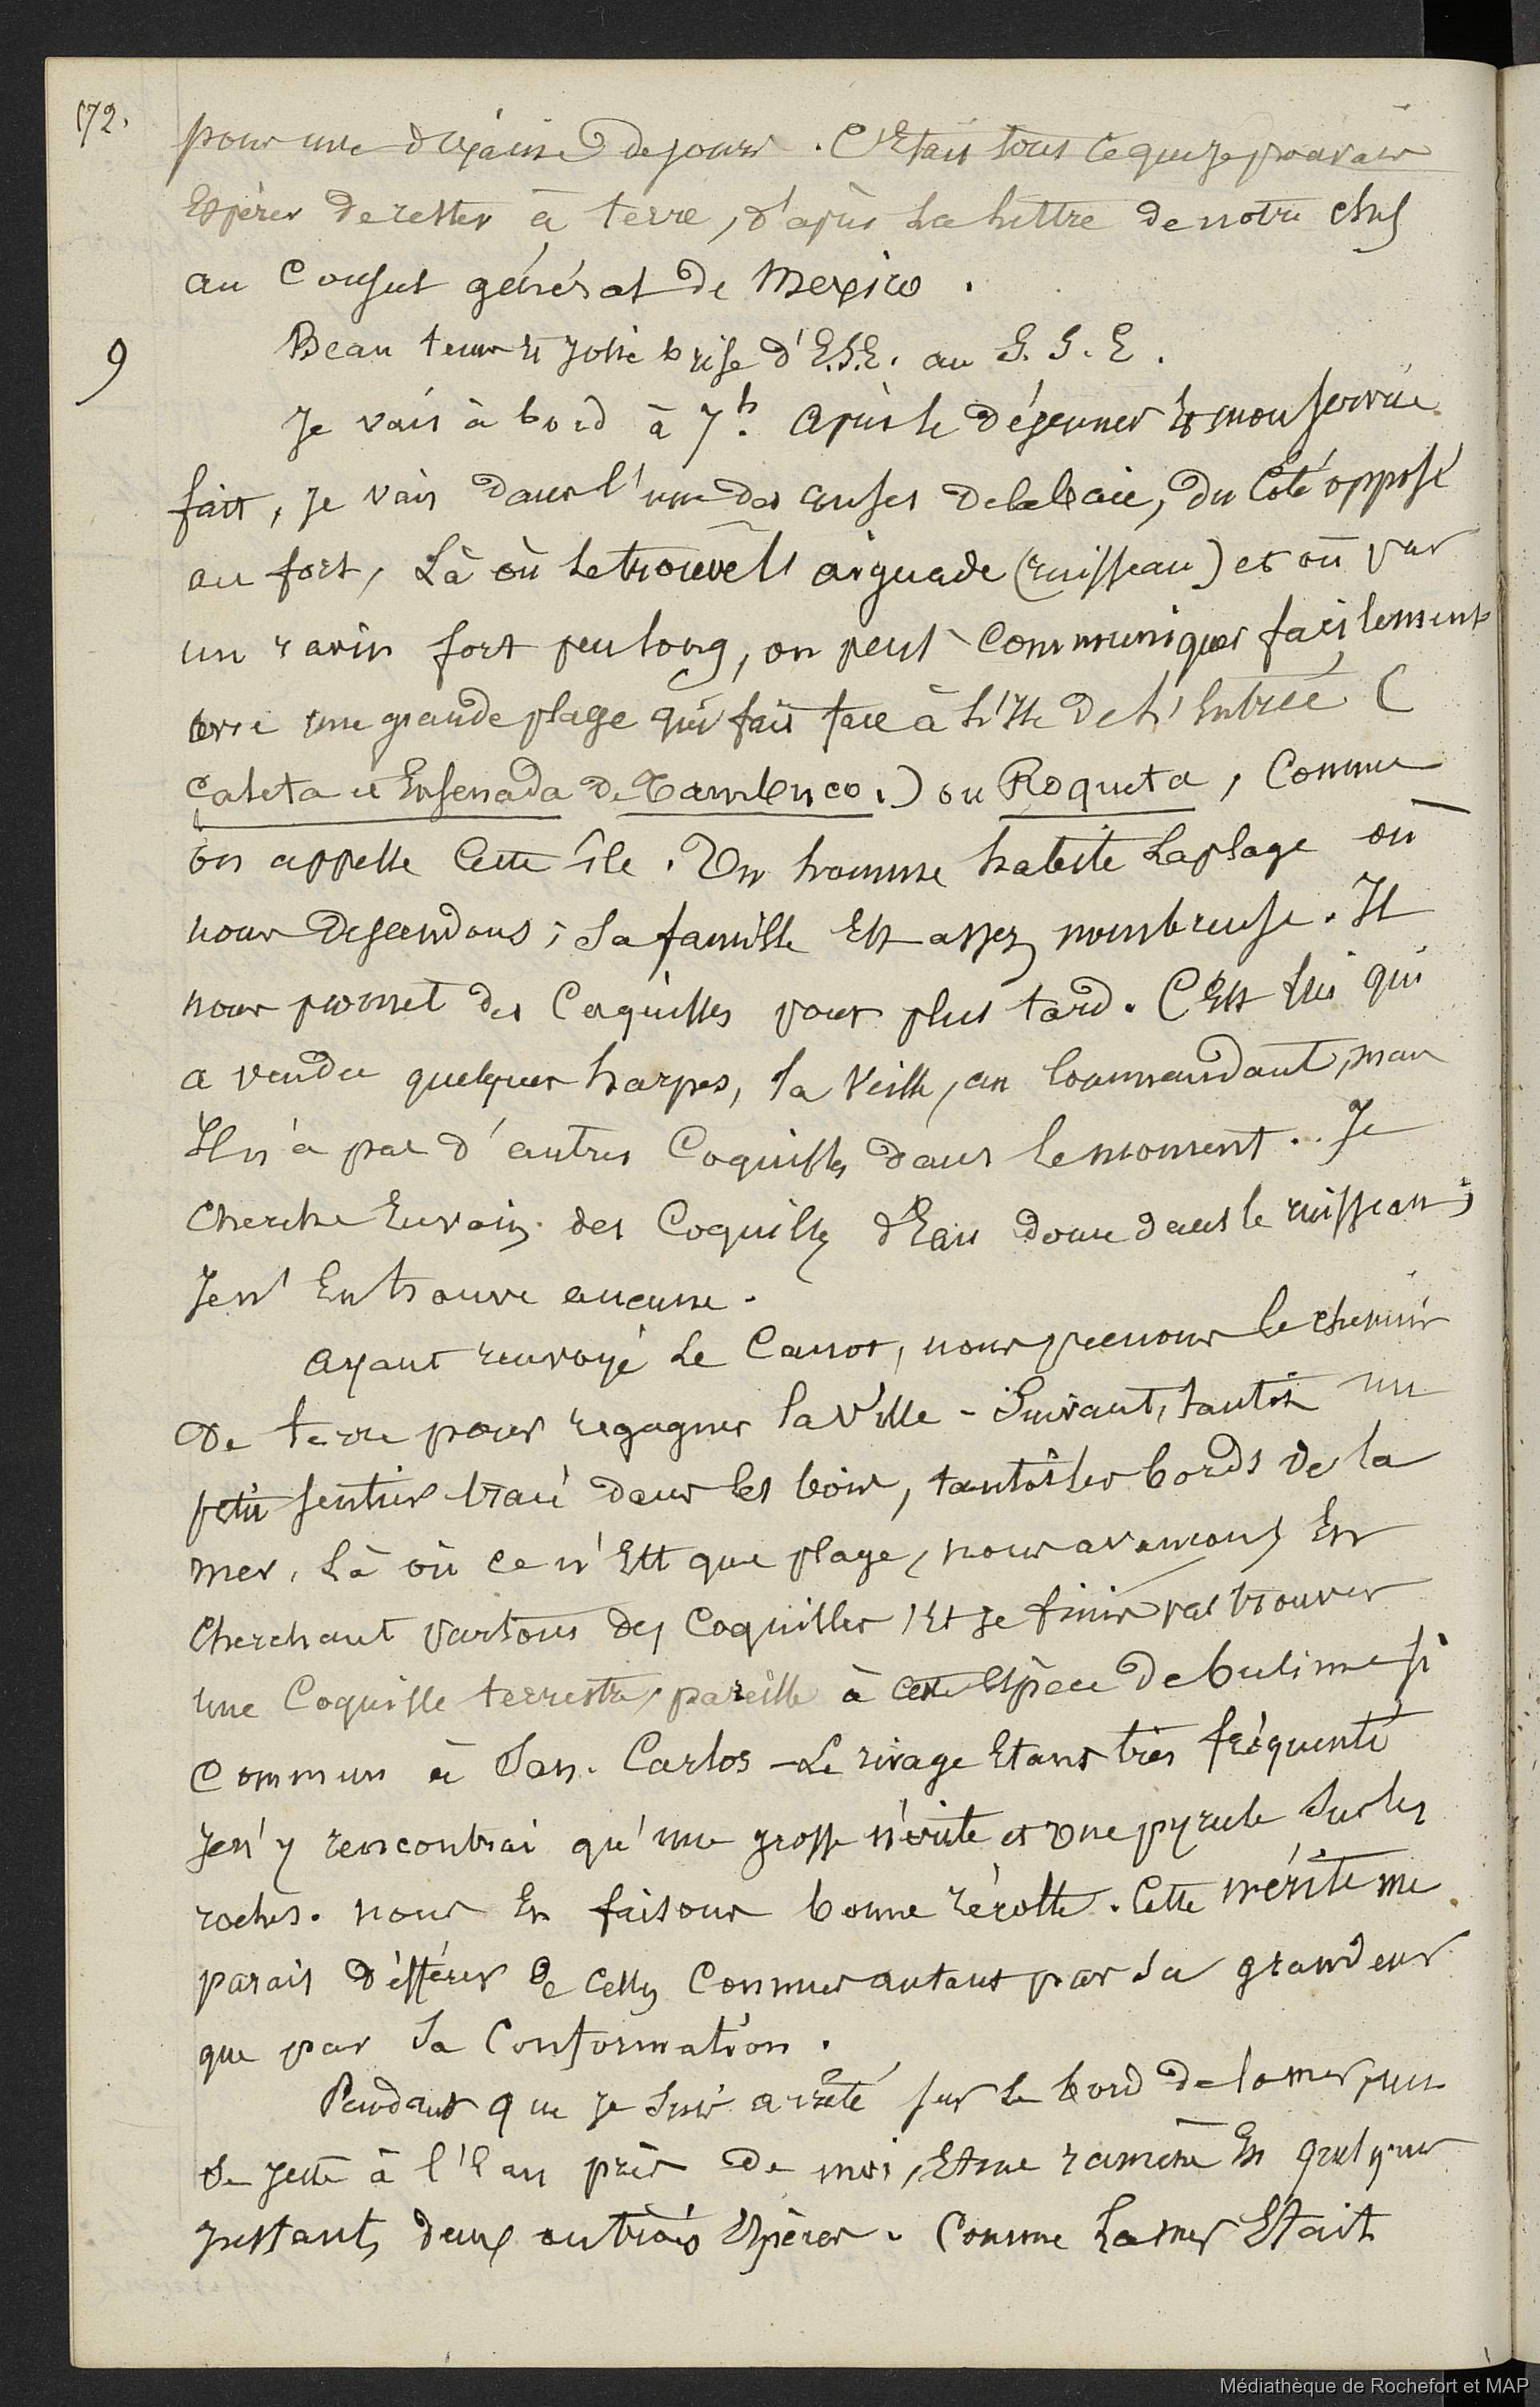 172.
pour une dixaine de jours. C'Etait tous ce que je pouvais
Espérer de rester à terre, d'après la lettre de notre chef
au Consul général de Mexico.
9
Beau tems et Jolie brise d'E.S.E. au S.S.E.
Je vais à bord à 7h. Après le déjeuner Et mon service
fait, je vais dans l'une des anses de la baie, du Côté opposé
au fort, Là où se trouve l'aiguade (ruisseau) et où par
un ravin fort peu long, on peut Communiquer facilement
avec une grande plage qui fait face à L'Ile de L'Entrée (
Caleta et Ensenada de Tambuco.) ou Roqueta, Comme
on appelle Cette île. Un homme habite La plage où
nous Descendons; Sa famille Est assez nombreuse. Il
nous promet des Coquilles pour plus tard. C'Est lui qui
a vendu quelques harpes, la Veille, au Commandant, mais
Il n'a pas d'autres Coquilles dans le moment. Je
Cherche En vain des Coquilles d'Eau douce dans le ruisseau;
Je n'En trouve aucune.
Ayant renvoyé Le Canot, nous prenons le chemin
De terre pour regagner la Ville - Suivant, tantôt un
petit sentier tracé dans les bois, tantôt les bords de la
mer, Là où ce n'Est que plage, nous avançons En
Cherchant partout des Coquilles, Et je finis par trouver
une Coquille terrestre, pareille à cette Espèce de bulime si
Commun à San. Carlos - Le rivage Etant très fréquenté
Je n'y rencontrai qu'une grosse nérite et une pyrule Sur les
roches. nous En faisons bonne récolte. Cette nérite me
parait différer de Celles Connues autant par Sa grandeur
que par Sa Conformation.
Pendant que je Suis arrêté sur le bord de la mer,
Se jette à l'Eau près De moi, Et me ramène En quelques
Instants, deux ou trois Espèces. Comme La mer Etait
Médiathèque de Rochefort et MAP